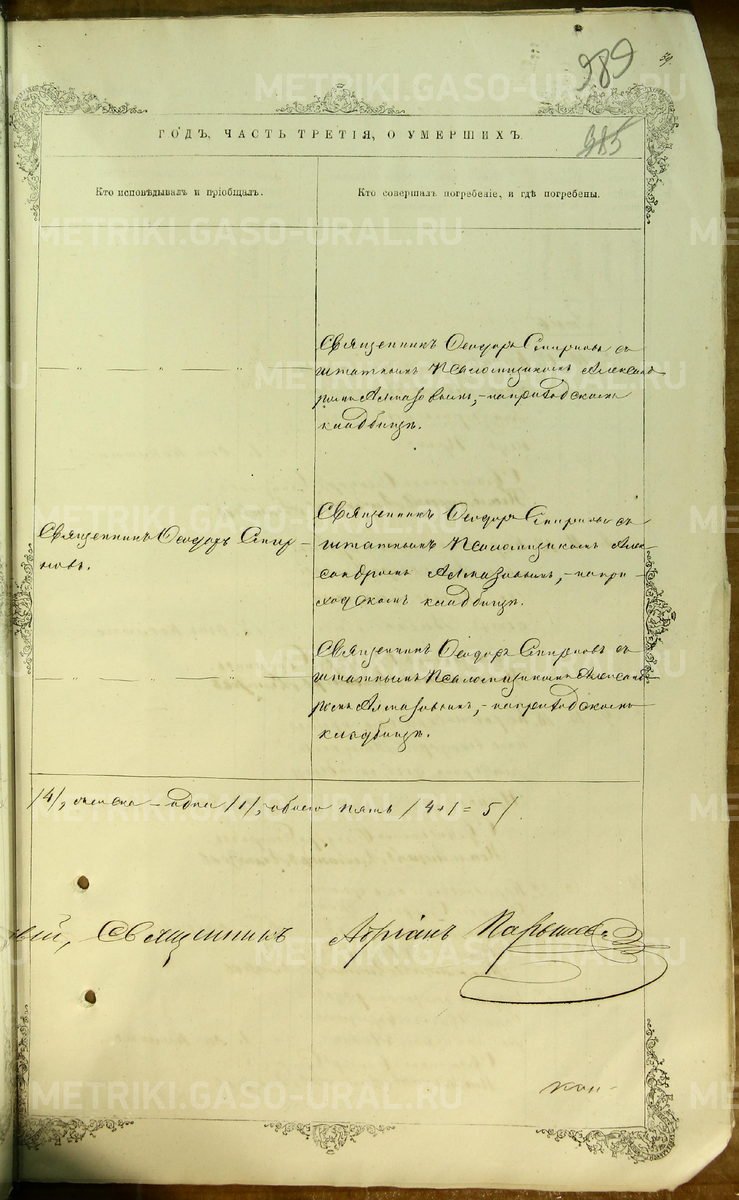 989
59.
985
ГОДЪ, ЧАСТЬ ТРЕТІЯ, О УМЕРШИХЪ.
Кто исповѣдывалъ и пріобщалъ.
Кто совершалъ погребеніе, и гдѣ погребены.
Священникъ Ѳеодоръ Смирновъ съ
штатнымъ Псаломщикомъ Александ-
ромъ Алмазовымъ, - на приходскомъ
кладбищѣ.
Священникъ Ѳеодоръ Смир-
новъ.
Священникъ Ѳеодоръ Смирновъ съ
штатнымъ Псаломщикомъ Алек-
сандромъ Алмазовымъ, - на при-
ходскомъ кладбищѣ.
Священникъ Ѳеодоръ Смирновъ съ
штатнымъ Псаломщикомъ Александ-
ромъ Алмазовымъ, - на приходскомъ
кладбищѣ.
/4/, женска - одна /1/, обоего пять /4+1=5/
Священникъ Адріанъ
METRIKI.GASO-URAL.RU